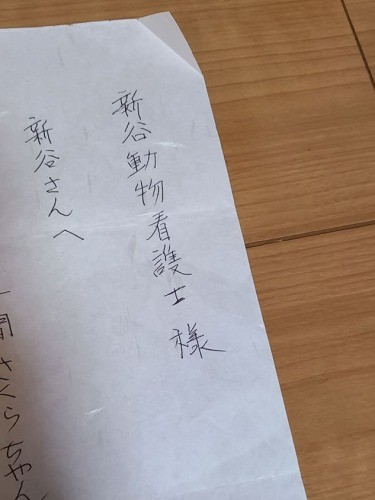 新谷動物看護士 様
新谷さんへ
間さくらちゃん